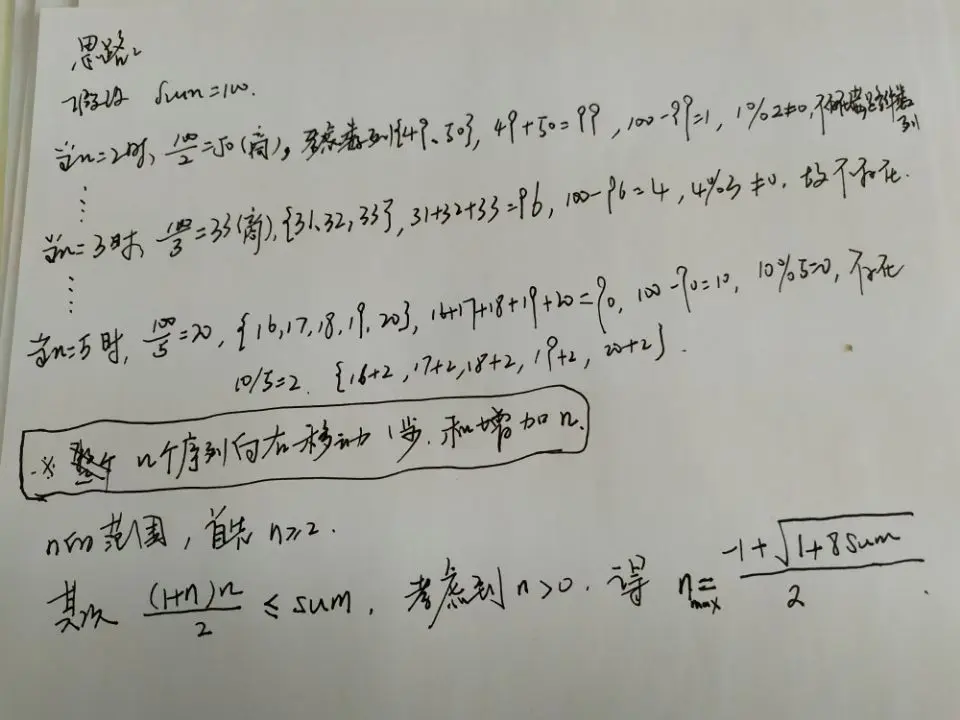 思路:
假设 sum=100.
当n=2时, 100/2=50(商), 考虑数列{49、50}, 49+50=99, 100-99=1, 1%2≠0, 不满足条件
⋮
当n=3时, 100/3=33(商), {31、32, 33}, 31+32+33=96, 100-96=4, 4%3≠0. 故不存在.
⋮
当n=5时, 100/5=20, {16,17,18,19,20}, 16+17+18+19+20=90, 100-90=10, 10%5=0, 存在
10/5=2. {16+2, 17+2, 18+2, 19+2, 20+2}.
※ 整个 n个序列向右移动1步. 和增加n.
n的范围, 首先 n≥2.
其次 (1+n)n/2 ≤ sum, 考虑到n>0. 得 n_max = (-1+√(1+8sum))/2.